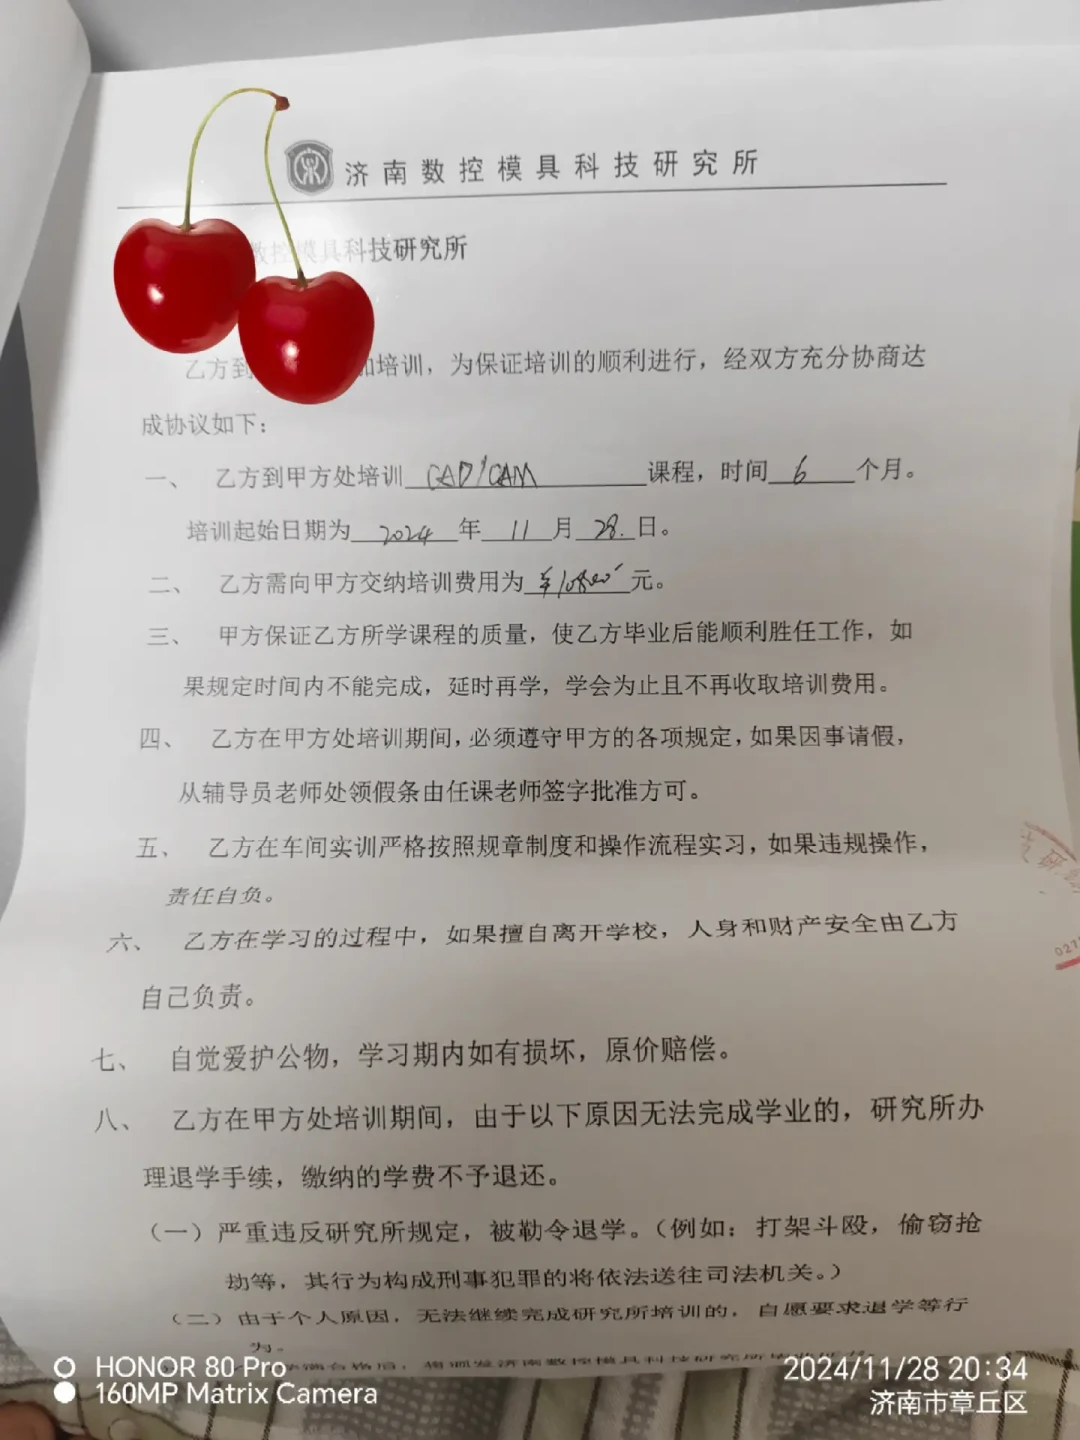 济南数控模具科技研究所
数控模具科技研究所
乙方到 加培训，为保证培训的顺利进行，经双方充分协商达
成协议如下：
一、 乙方到甲方处培训 CAD/CAM 课程，时间 6 个月。
培训起始日期为 2024 年 11 月 28 日。
二、 乙方需向甲方交纳培训费用为 ¥10800 元。
三、 甲方保证乙方所学课程的质量，使乙方毕业后能顺利胜任工作，如
果规定时间内不能完成，延时再学，学会为止且不再收取培训费用。
四、 乙方在甲方处培训期间，必须遵守甲方的各项规定，如果因事请假，
从辅导员老师处领假条由任课老师签字批准方可。
五、 乙方在车间实训严格按照规章制度和操作流程实习，如果违规操作，
责任自负。
六、 乙方在学习的过程中，如果擅自离开学校，人身和财产安全由乙方
自己负责。
七、 自觉爱护公物，学习期内如有损坏，原价赔偿。
八、 乙方在甲方处培训期间，由于以下原因无法完成学业的，研究所办
理退学手续，缴纳的学费不予退还。
（一）严重违反研究所规定，被勒令退学。（例如：打架斗殴，偷窃抢
劫等，其行为构成刑事犯罪的将依法送往司法机关。）
（二）由于个人原因，无法继续完成研究所培训的，自愿要求退学等行
为。
研
021
HONOR 80 Pro
160MP Matrix Camera
2024/11/28 20:34
济南市章丘区